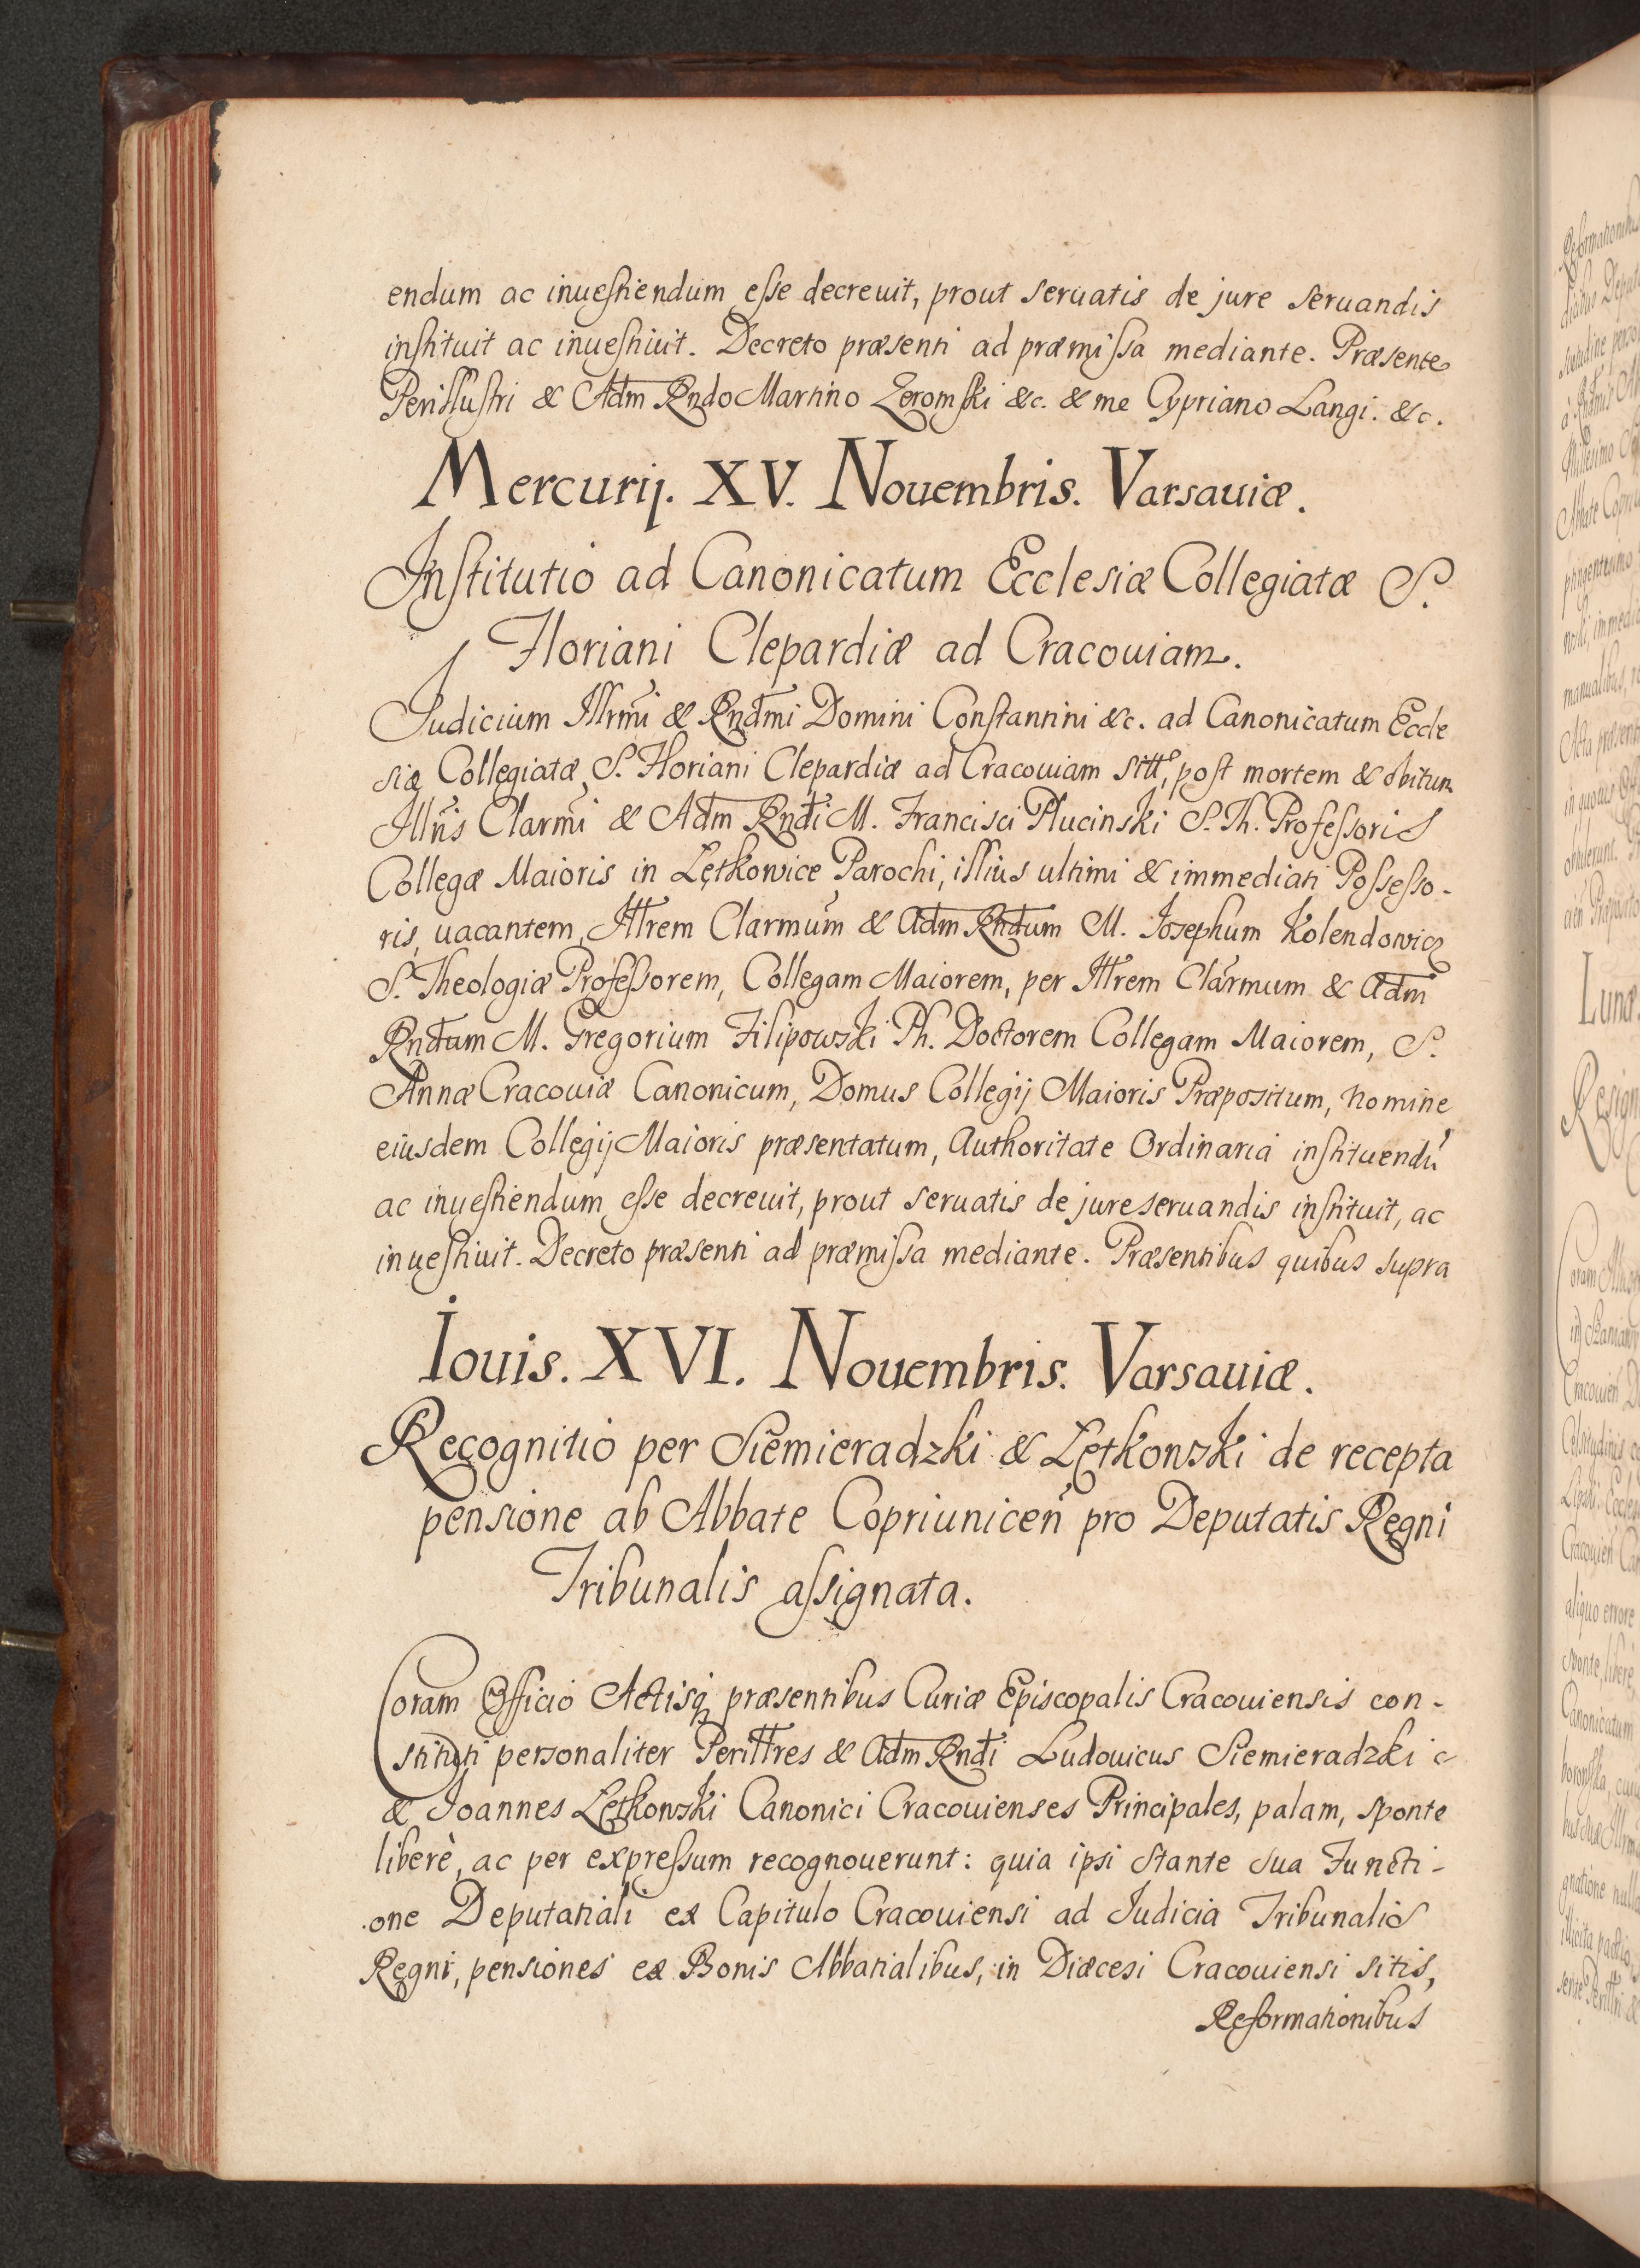 endum ac inuestiendum esse decreuit, prout seruatis de jure seruandis
instituit ac inuestiuit. Decreto præsenti ad præmissa mediante. Præsente
Perillustri & Adm Rndo Martino Zeromski &c. & me Cypriano Langi. &c.
Mercurij. XV. Nouembris. Varsauiæ.
Institutio ad Canonicatum Ecclesiæ Collegiatæ S.
Floriani Clepardiæ ad Cracouiam.
Judicium Illrmi & Rndmi Domini Constantini &c. ad Canonicatum Eccle
siæ Collegiatæ S. Floriani Clepardiæ ad Cracouiam sitt, post mortem & obitum
Illris Clarmi & Adm Rndi M. Francisci Plucinski S. Th. Professoris
Collegæ Maioris in Lętkowice Parochi, illius ultimi & immediati Possesso-
ris, uacantem, Illrem Clarmum & Adm Rndum M. Josephum Kolendowicz
S. Theologiæ Professorem, Collegam Maiorem, per Illrem Clarmum & Adm
Rndum M. Gregorium Filipowski Ph. Doctorem Collegam Maiorem, S.
Annæ Cracouiæ Canonicum, Domus Collegij Maioris Præpositum, nomine
eiusdem Collegij Maioris præsentatum, Authoritate Ordinaria instituendū
ac inuestiendum esse decreuit, prout seruatis de jure seruandis instituit, ac
inuestiuit. Decreto præsenti ad præmissa mediante. Præsentibus quibus supra
Iouis. XVI. Nouembris. Varsauiæ.
Recognitio per Siemieradzki & Lętkowski de recepta
pensione ab Abbate Copriunicen̄ pro Deputatis Regni
Tribunalis assignata.
Coram Officio Actisq præsentibus Curiæ Episcopalis Cracouiensis con-
stituti personaliter Perillres & Adm Rndi Ludouicus Siemieradzki
& Joannes Lętkowski Canonici Cracouienses Principales, palam, sponte
liberè, ac per expressum recognouerunt: quia ipsi stante sua Functi-
one Deputatiali ex Capitulo Cracouiensi ad Judicia Tribunalis
Regni, pensiones ex Bonis Abbatialibus, in Diæcesi Cracouiensi sitis,
Reformationibus